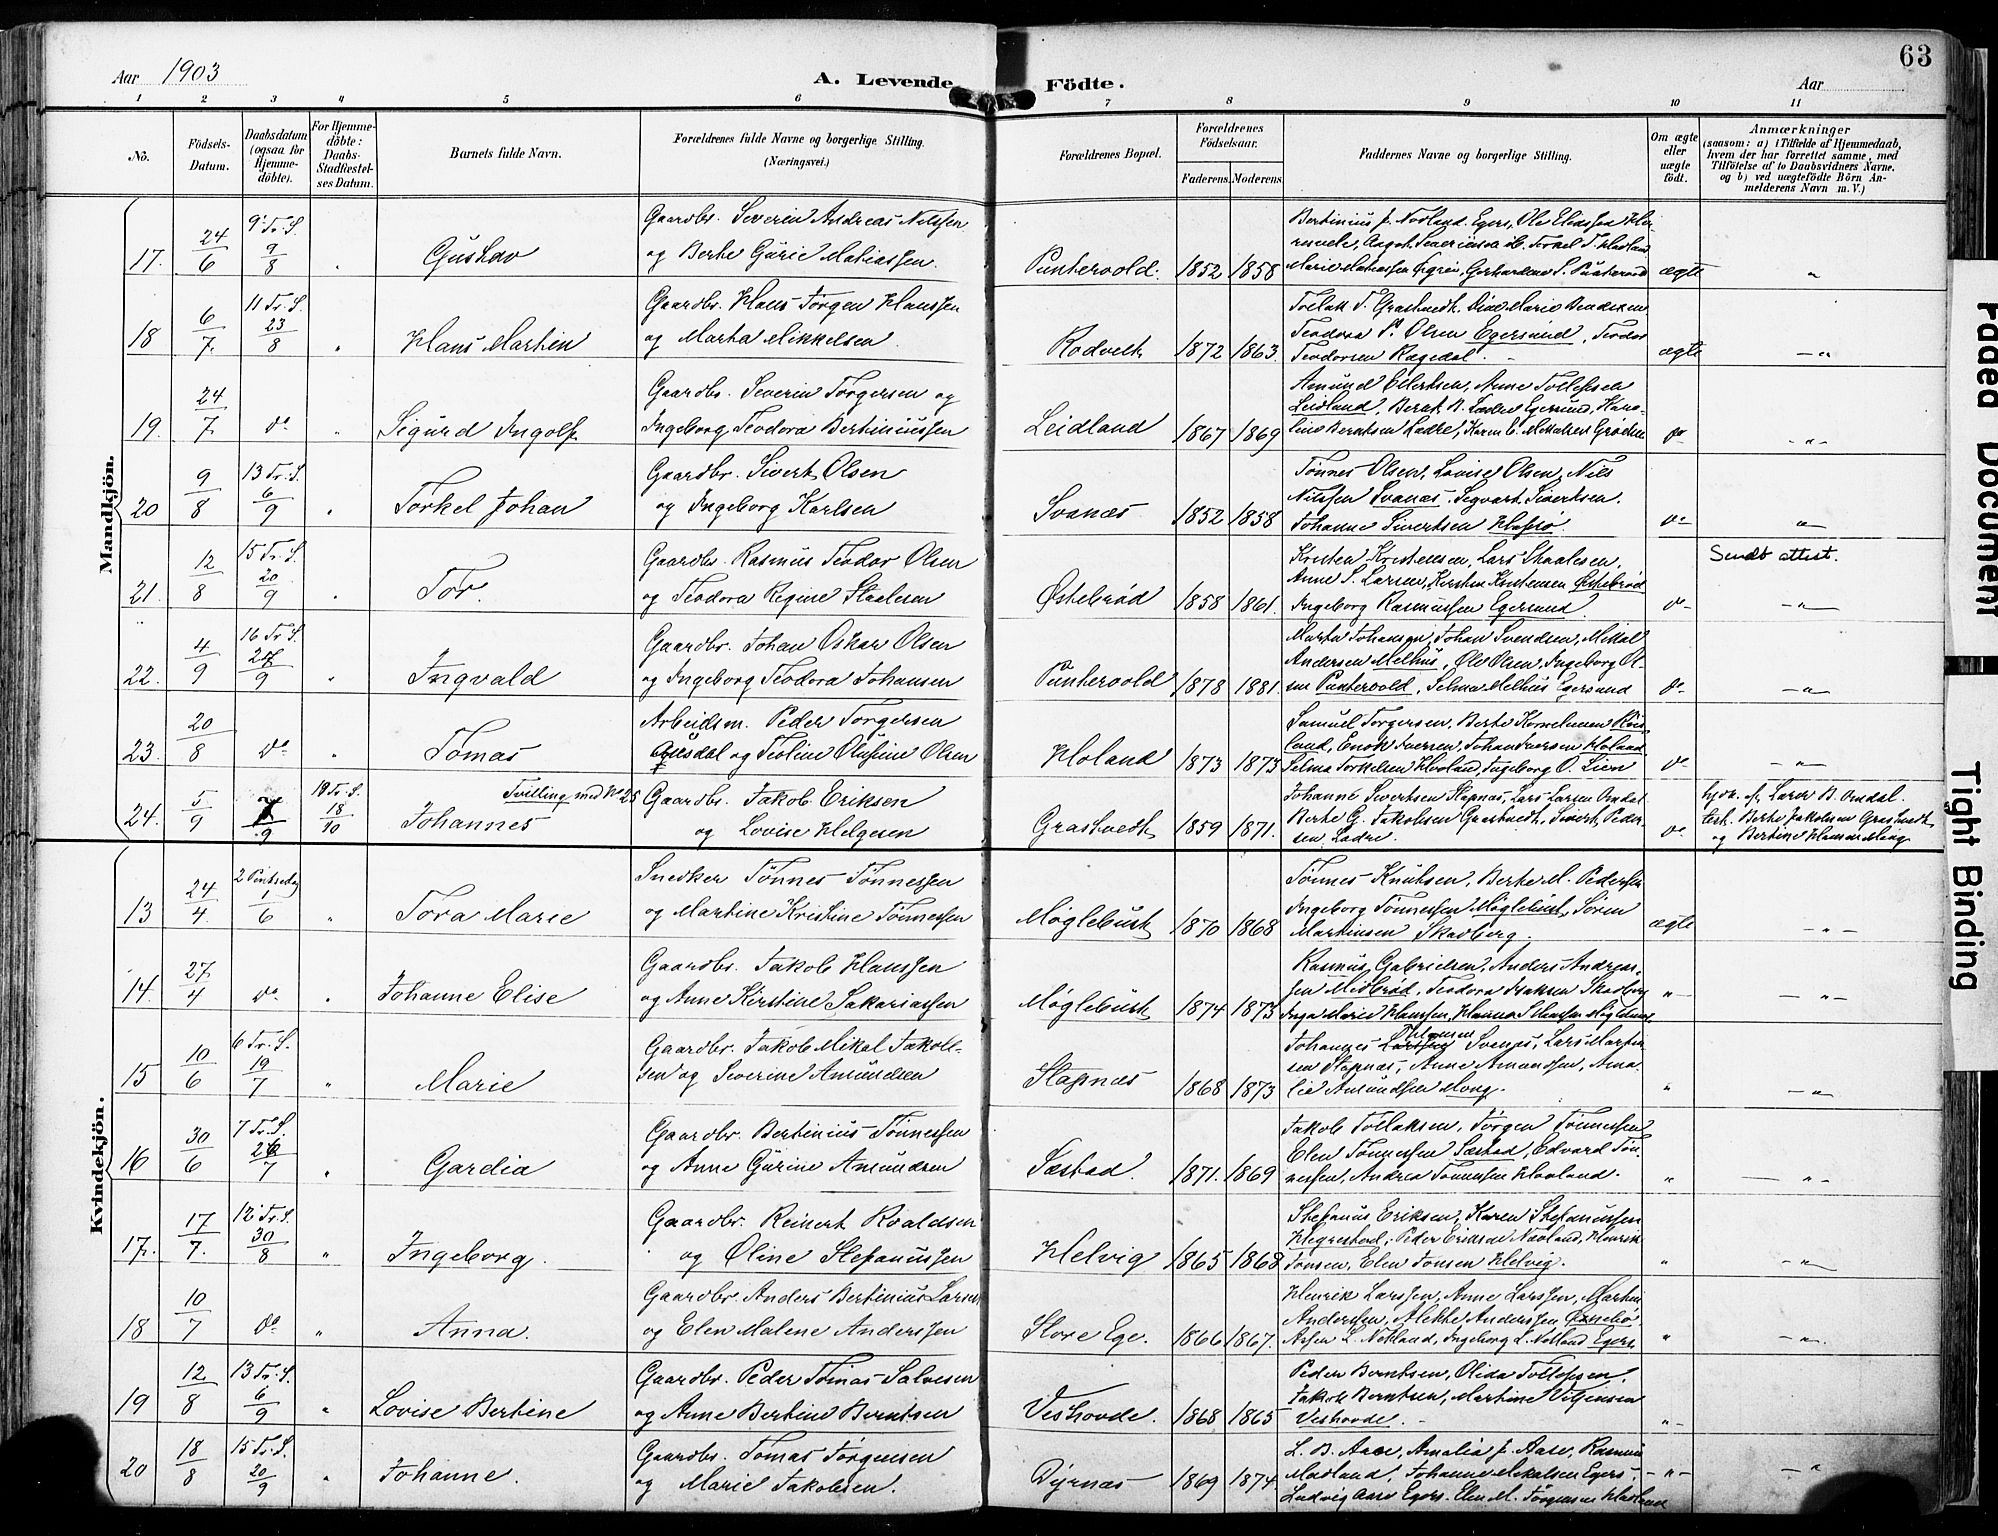 63
Aar 1903
A. Levende Födte.
Aar
1 2 3 4 5 6 7 8 9 10 11
No.
Födsels-Datum.
Daabsdatum (ogsaa for Hjemme-döbte).
For Hjemme-döbte: Daabs-Stadfæstel-ses Datum.
Barnets fulde Navn.
Forældrenes fulde Navne og borgerlige Stilling. (Næringsvei.)
Forældrenes Bopæl.
Forældrenes Födselsaar.
Faderens. Moderens.
Faddernes Navne og borgerlige Stilling.
Om ægte eller uægte födt.
Anmærkninger (saasom: a) i Tilfælde af Hjemmedaab, hvem der har forrettet samme, med Tilföielse af to Daabsvidners Navne, og b) ved uægtefödte Börn An-melderens Navn m. V.)
Mandkjön.
17. 24/6 9' Tr. S. 9/8 " Gustav
Gaardbr. Severin Andreas Nilssen
og Berte Gurie Matiassen.
Puntervold. 1852 1858 ægte "
18 6/7. 11 Tr. S. 23/8 " Hans Martin
Gaardbr. Hans Jørgen Hanssen
og Marta Mikkelsen.
Rodvelt 1872 1863.
Teodora P. Olsen Egersund, Teodor
Teodorsen Rægedal. ægte "
19. 24/7. do " Sigurd Ingolf
Gaardbr. Severin Torgersen og
Ingeborg Teodora Bertiniussen
Leidland 1867 1869
Leidland, Bernt B. Ladre Egersund, Karo-
do "
20 9/8 13 Tr. S. 6/9 " Torkel Johan
Gaardbr. Sivert Olsen
og Ingeborg Karlsen
Svanæs 1852 1858
Tønnes Olsen, Lovise Olsen, Nils
Nilssen Svanæs. Sigvart Sivertsen.
Johanne Sivertsen do "
21. 12/8 15 Tr. S. 20/9 " Tor.
Gaardbr. Rasmus Teodor Olsen
og Teodora Regine Staalesen
Østebrød 1858 1861.
Kristen Kristensen, Lars Staalesen,
Anne S. Larsen, Kirsten Kristensen Østebrød
Ingeborg Rasmussen Egersund. do "
Sendt attest.
22. 4/9 16 Tr. S. 27/9 " Ingvald
Gaardbr. Johan Oskar Olsen
og Ingeborg Teodora Johansen
Puntervold 1878 1881.
Marta Johansen, Johan Svendsen, Mikal
Andersen Melhus, Ole Olsen, Ingeborg Ol-
sen Puntervold, Selma Melhus Egersund do "
23. 20/8 do " Tomas
Arbeidsm. Peder Torgersen
og Teoline Olufine Olsen
Hovland 1873 1873
Samuel Torgersen, Berte Korneliussen
land, Enok Iversen, Johan Iversen Hovland
Selma Torkelsen Hovland, Ingeborg O. Lien do "
24. 5/9 7/9 18/10 Johannes
Tvilling med No 25
Gaardbr. Jakob Eriksen
og Lovise Helgesen
Grastvedt 1859 1871.
Johanne Sivertsen Stapnæs, Lars Larsen Omdal
Berte G. Jakobsen Grastvedt, Sivert Peder-
sen Ladre. do
hjdb. af Lærer B. Omdal.
test. Berte Jakobsen Grastvedt
og Bertine Hansen Mong
Kvindekjön.
13 24/4. 2 Pintsedag 1/6 " Tora Marie
Snedker Tönnes Tönnessen
og Martine Kristine Tönnessen
Møglebust 1870 1868
Tönnes Knutsen, Berte M. Pedersen
Ingeborg Tönnessen Møglebust, Søren
Martinsen Skadberg. ægte "
14. 27/4 do " Johanne Elise
Gaardbr. Jakob Hanssen
og Anne Kirstine Sakariassen
Møglebust 1874 1873
Rasmus Gabrielsen, Anders Andreas-
sen Midbrød, Teodora Isaksen Skadberg
" "
15 10/6 6 Tr. S. 19/7 " Marie
Gaardbr. Jakob Mikal Jakob-
sen og Severine Amundsen
Stapnæs 1868 1873
Johannes Svanes, Lars Martin-
sen Stapnæs, Anne Amundsen, Ama-
lie Amundsen Mong. " "
16 30/6 7 Tr. S. 26/7 " Gardia
Gaardbr. Bertinius Tönnessen
og Anne Gurine Amundsen
Sæstad. 1871. 1869
Jakob Tollaksen, Jørgen Tönnessen
Elen Tönnessen Sæstad, Edvard Tön-
nessen, Andrea Tönnessen Hovland. " "
17. 17/7. 12 Tr. S. 30/8 " Ingeborg.
Gaardbr. Reinert Roaldsen
og Oline Stefanussen
Helvig 1865 1868
Stefanus Eriksen, Karen Stefanussen
Hegrestad, Peder Eriksen Nodland, Henrik
Jonsen, Elen Jonsen Helvig. " "
18 10/7 do " Anna.
Gaardbr. Anders Bertinius Larsen
og Elen Malene Anderssen
Store Ege. 1866 1867.
Henrik Larssen, Anne Larssen, Marten
Anderssen, Alette Anderssen
L. Nodland, Ingeborg L. Nodland Egers. " "
19 12/8 13 Tr. S. 6/9 " Lovise Bertine
Gaardbr. Peder Tomas Salvesen
og Anne Bertine Berntsen
Veshovde. 1868 1865
Peder Berntsen, Olida Tollefsen,
Jakob Berntsen, Martine
Veshovde. " "
20 18/8 15 Tr. S. 20/9 " Johanne.
Gaardbr. Tomas Jørgensen
og Marie Jakobsen.
Dyrnæs 1869 1874.
L. B. Aase, Amalia J. Aase, Rasmus
Madland, Johanne Mikalsen Egers.
Ludvig Aase Egers. Elen M. Jørgensen Hovland " "
Faded Document
Tight Binding